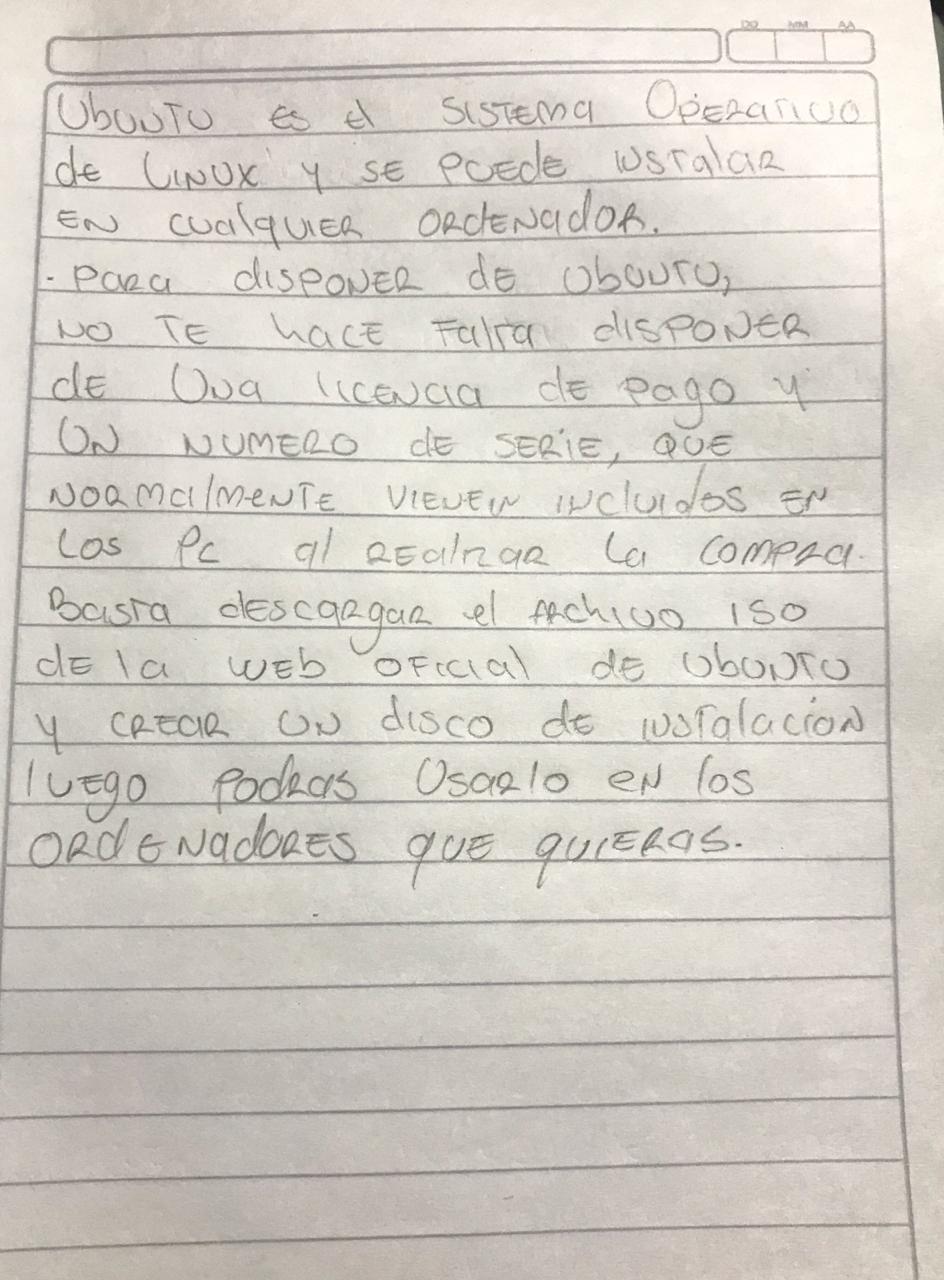 DD MM AA
Ubuntu es el sistema Operativo
de Linux y se puede instalar
en cualquier ordenador.
. para disponer de Ubuntu,
no te hace falta disponer
de Una licencia de pago y
Un numero de serie, que
normalmente vienein incluidos en
los Pc al realizar la compra.
Basta descargar el archivo ISO
de la web oficial de Ubuntu
y crear un disco de instalación
luego podras Usarlo en los
ordenadores que quieras.